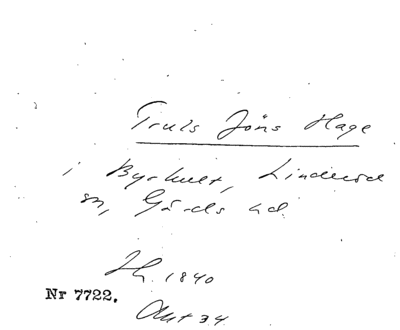 Truls Jöns Hage
i Byrhult, Linderöd
sn, Gärds hd.
1840
Nr 7722.
Akt 34